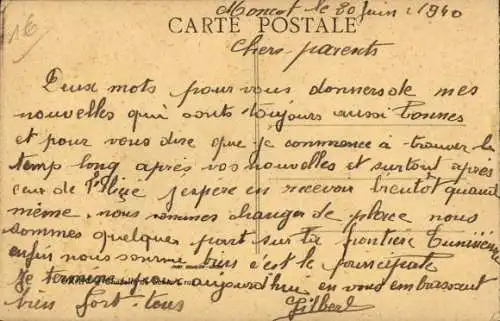 1€
Moncot le 20 juin 1940
CARTE POSTALE
Chers parents
Deux mots pour vous donners de mes
nouvelles qui sont toujours aussi bonnes
et pour vous dire que je commence à trouver le
temp long après vos nouvelles et surtout après
ceux de j'espère en recevoir bientot quand
même. nous sommes changer de place nous
sommes quelques part sur la frontière Tunisienne
enfin nous somme bien c'est le principale
Je termine pour aujourdhui en vous embrassant
bien fort tous Gilbert